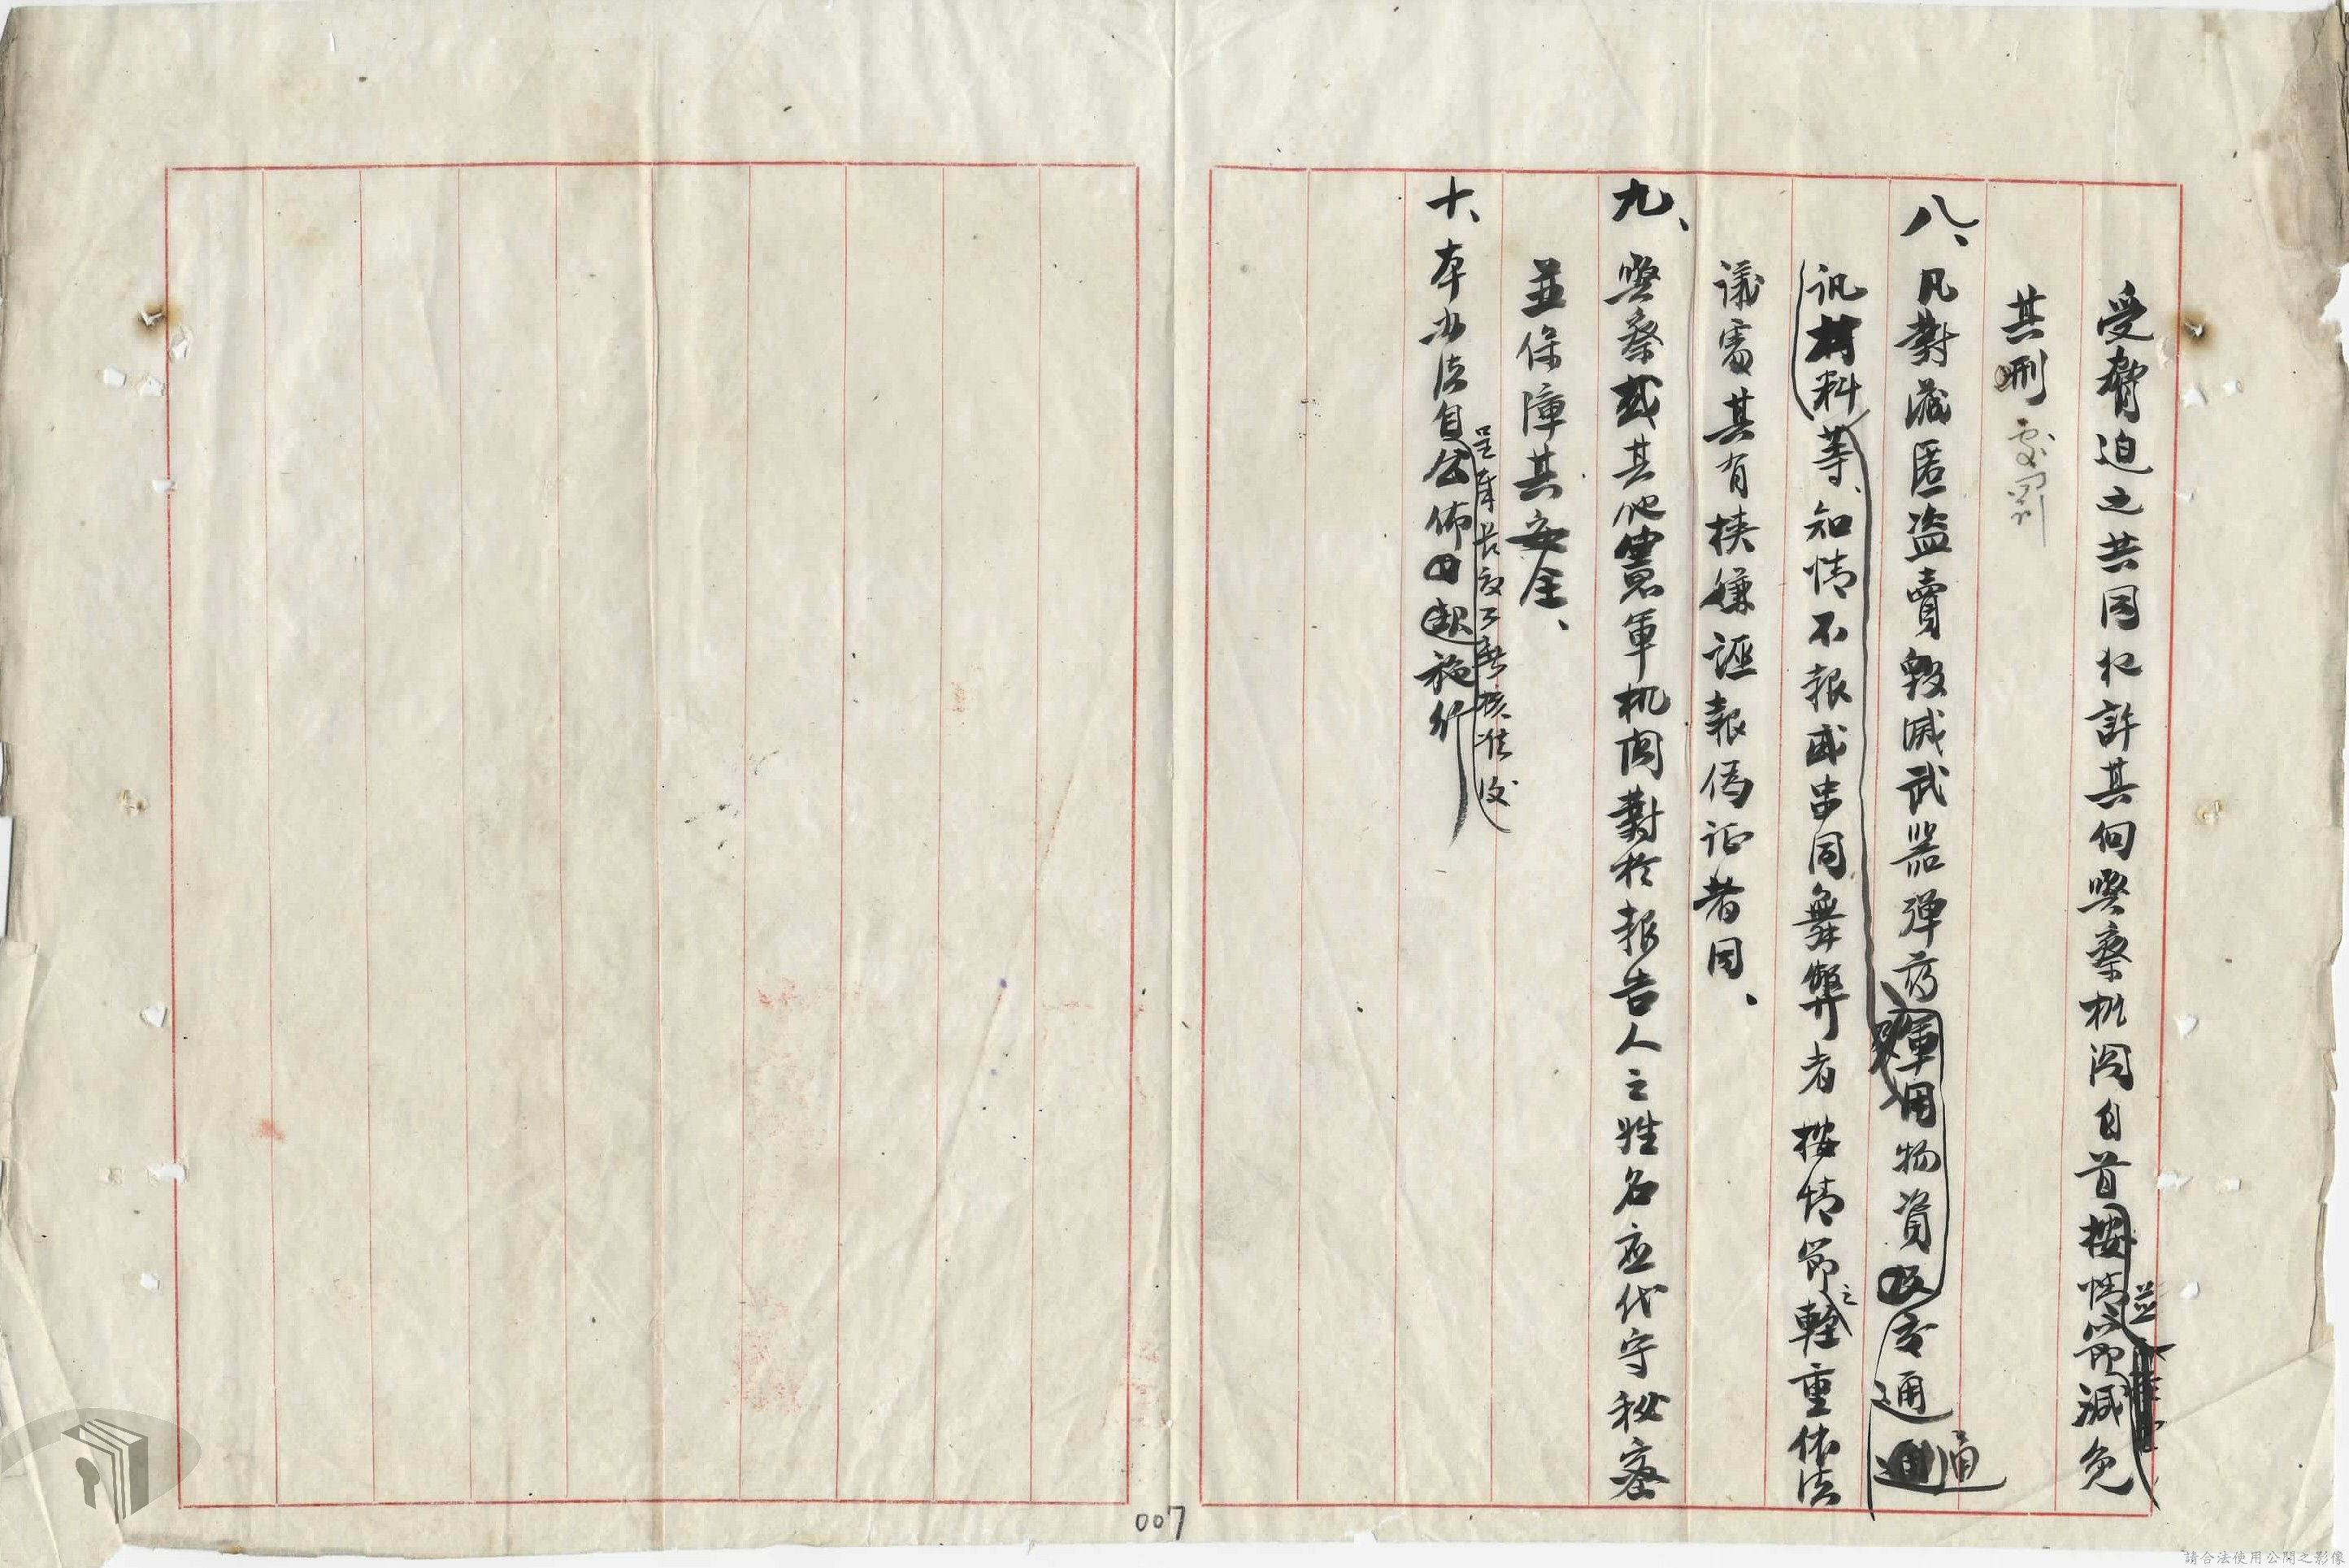 受脅迫之共同犯許其向警察机関自首按情節減免
並
其刑
處罰
八、凡對藏匿盜賣毀滅武器彈葯軍用物資及交通通
通
訊材料等、知情不報或串同舞弊者按情節輕重依法
之
議處其有挾嫌誣報偽証者同、
九、警察或其他憲軍机関對於報告人之姓名应代守秘密
並保障其安全、
十、本办法自公佈日起施行
呈奉長官公署核准後
007
請合法使用公開之影像